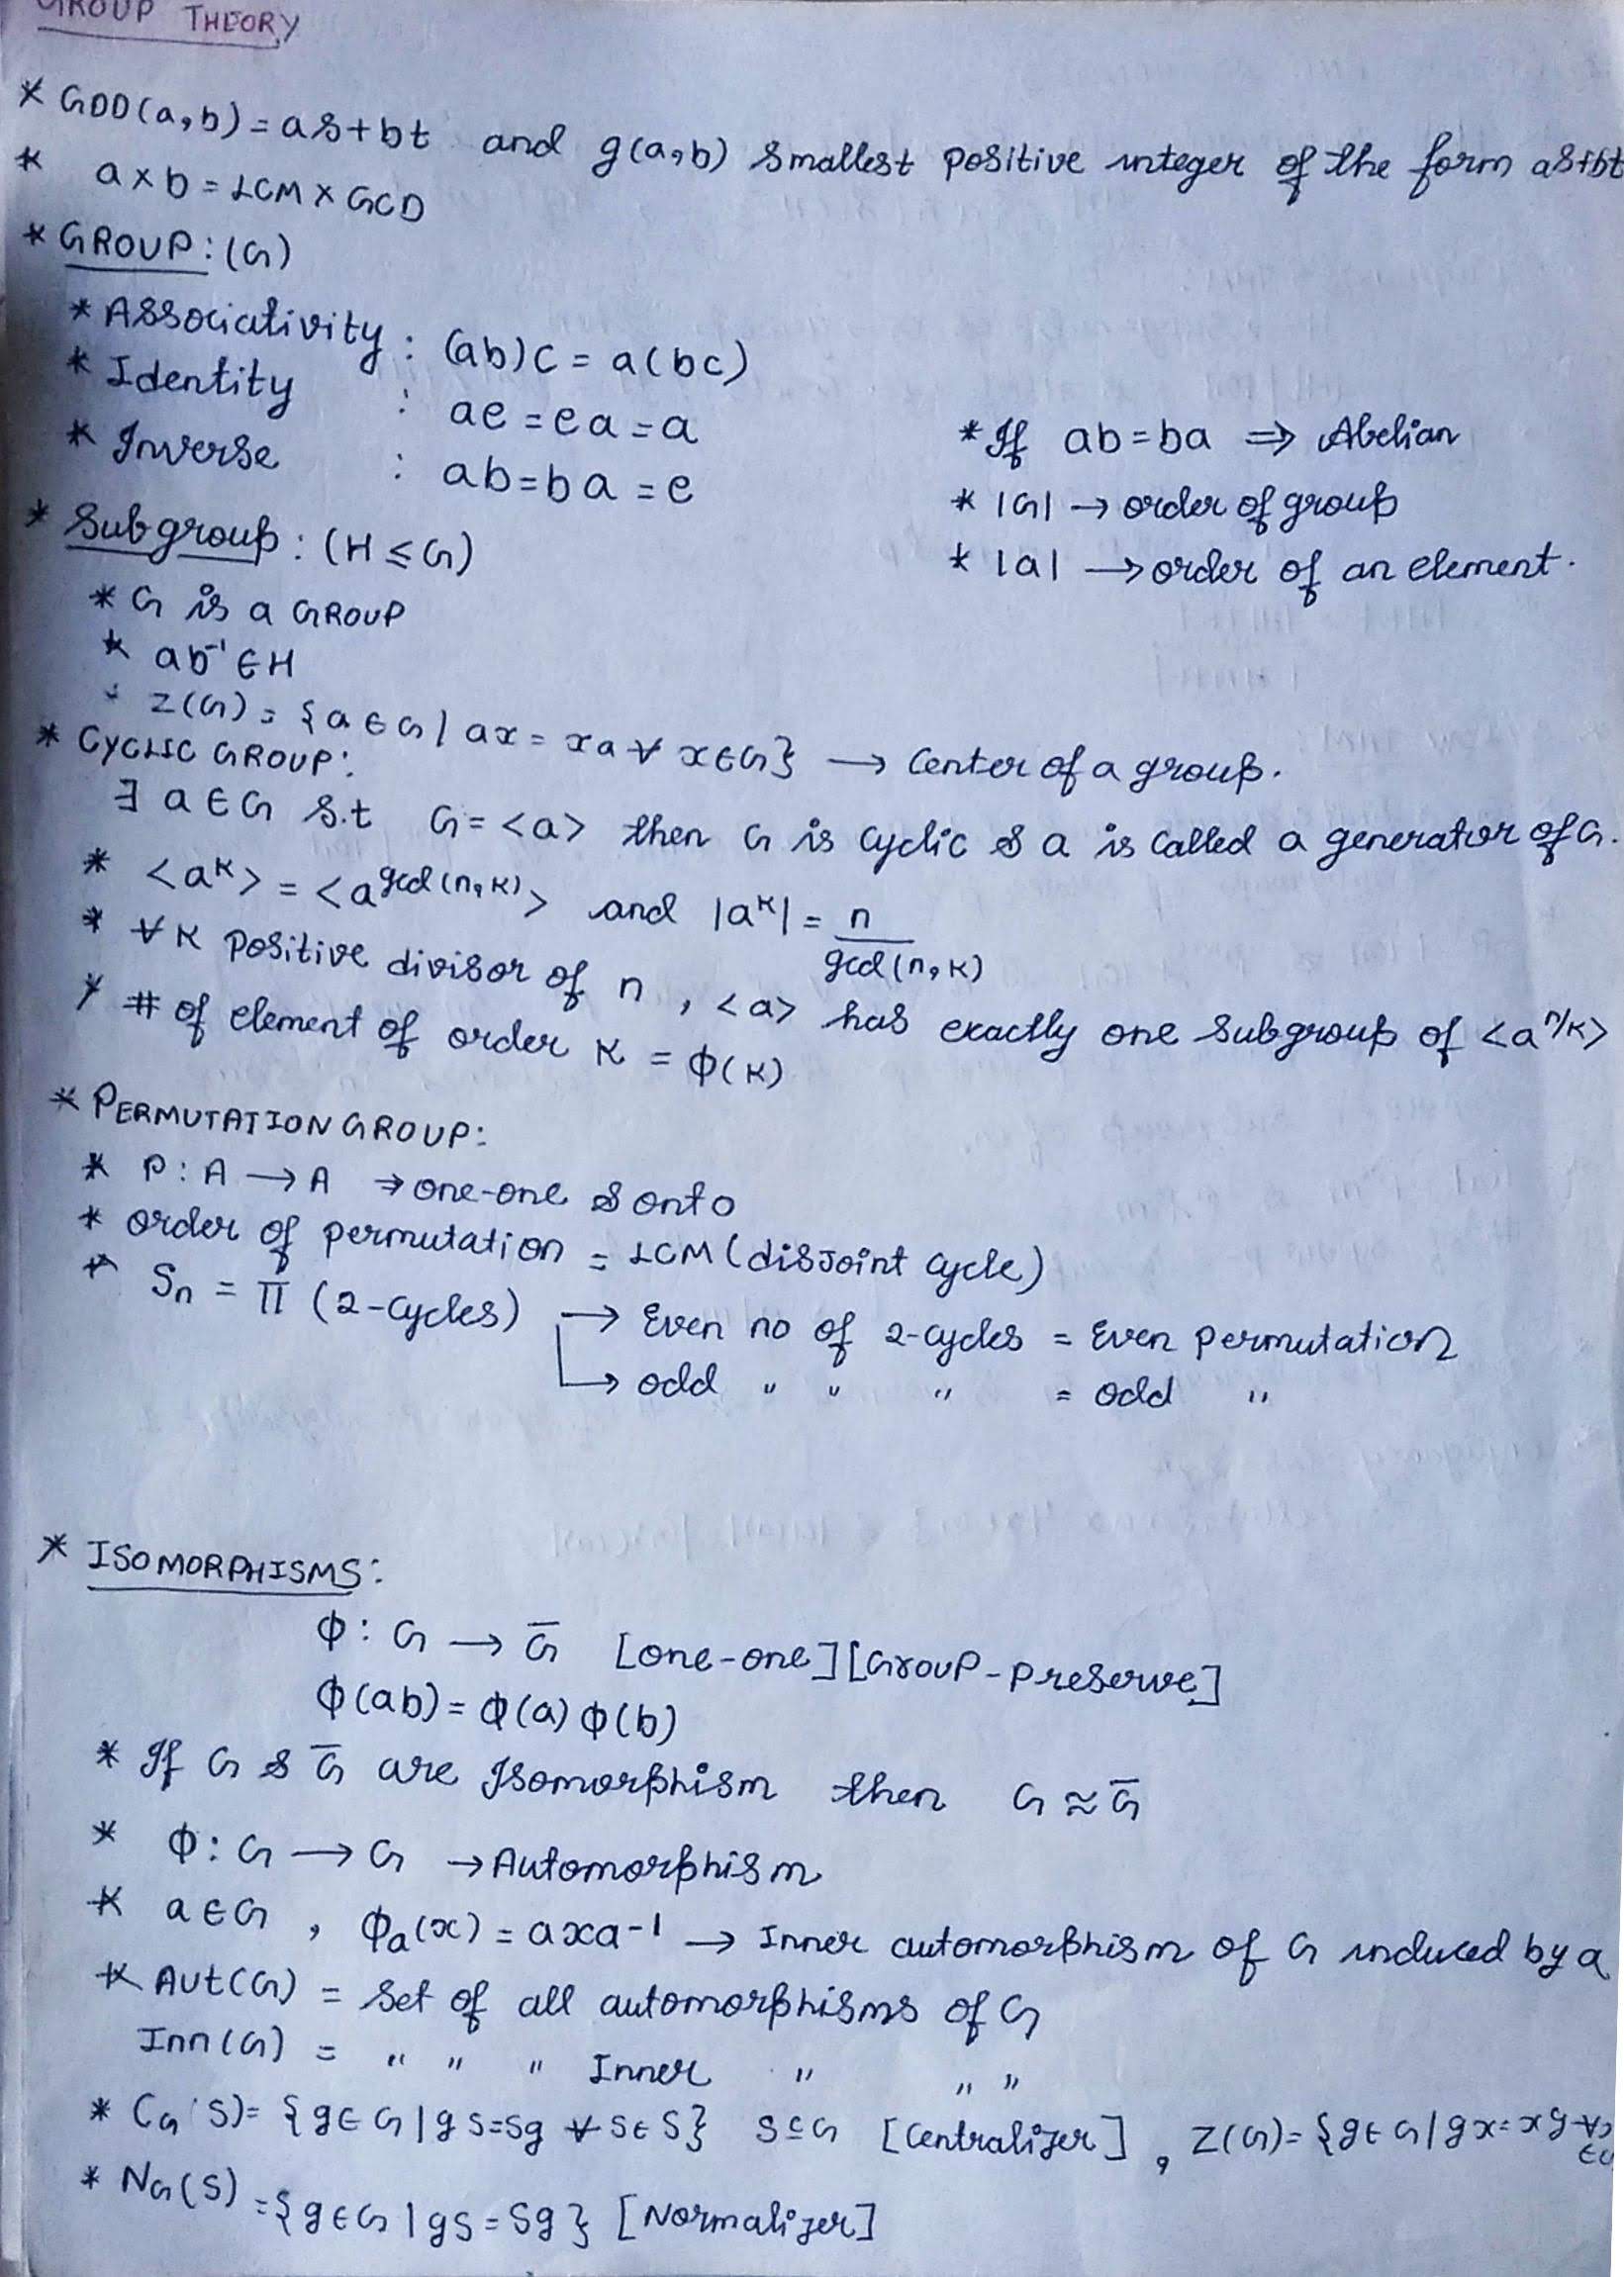 GROUP THEORY
* GDD(a,b) = as+bt and g(a,b) smallest positive integer of the form as+bt
* a x b = LCM x GCD
* GROUP: (G)
* Associativity : (ab)c = a(bc)
* Identity : ae = ea = a
* Inverse : ab = ba = e
* If ab = ba ⇒ Abelian
* |G| → order of group
* |a| → order of an element.
* Subgroup: (H ≤ G)
* G is a GROUP
* ab⁻¹ ∈ H
* Z(G) = {a ∈ G | ax = xa ∀ x ∈ G} → Center of a group.
* CYCLIC GROUP:
∃ a ∈ G s.t G = <a> then G is cyclic & a is called a generator of G.
* <a^k> = <a^gcd(n,k)> and |a^k| = n/gcd(n,k)
* ∀ k positive divisor of n, <a> has exactly one subgroup of <a^n/k>
* # of element of order k = ϕ(k)
* PERMUTATION GROUP:
* P: A → A ⇒ one-one & onto
* order of permutation = LCM (disjoint cycle)
* Sn = Π (2-cycles) → Even no of 2-cycles = Even permutation
→ odd " " " = odd "
* ISOMORPHISMS:
ϕ: G → G̅ [one-one] [Group-preserve]
ϕ(ab) = ϕ(a) ϕ(b)
* If G & G̅ are Isomorphism then G ≈ G̅
* ϕ: G → G → Automorphism
* a ∈ G, ϕa(x) = axa-1 → Inner automorphism of G induced by a
* Aut(G) = set of all automorphisms of G
Inn(G) = " " " Inner " " "
* CG(S) = {g ∈ G | gs = sg ∀ s ∈ S} S ⊆ G [Centralizer], Z(G) = {g ∈ G | gx = xg ∀
* NG(S) = {g ∈ G | gS = Sg} [Normalizer]